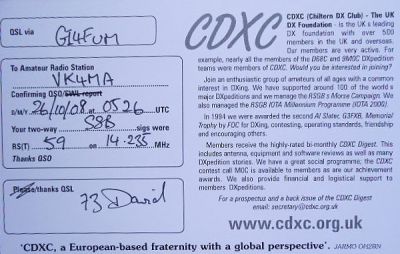 QSL via G4FUM
To Amateur Radio Station
VK4MA
Confirming QSO/SWL report
D/M/Y 26/10/08 at 0526 UTC
Your two-way SSB sigs were
RS(T) 59 on 14.235 MHz
Thanks QSO
Please/thanks QSL
73 David
CDXC
CDXC (Chiltern DX Club) - The UK
DX Foundation - is the UK's leading
DX foundation with over 500
members in the UK and overseas.
Our members are very active. For
example, nearly all the members of the D68C and 9M0C DXpedition
teams were members of CDXC. Would you be interested in joining?
Join an enthusiastic group of amateurs of all ages with a common
interest in DXing. We have supported around 100 of the world's
major DXpeditions and we manage the RSGB's Morse Campaign. We
also managed the RSGB IOTA Millennium Programme (IOTA 2000).
In 1994 we were awarded the second Al Slater, G3FXB, Memorial
Trophy by FOC for DXing, contesting, operating standards, friendship
and encouraging others.
Members receive the highly-rated bi-monthly CDXC Digest. This
includes antenna, equipment and software reviews as well as many
DXpedition stories. We have a great social programme; the CDXC
contest call M0C is available to members as are our achievement
awards. We also provide financial and logistical support to
members DXpeditions.
For a prospectus and a back issue of the CDXC Digest
email: secretary@cdxc.org.uk
www.cdxc.org.uk
'CDXC, a European-based fraternity with a global perspective'. JARMO OH2BN